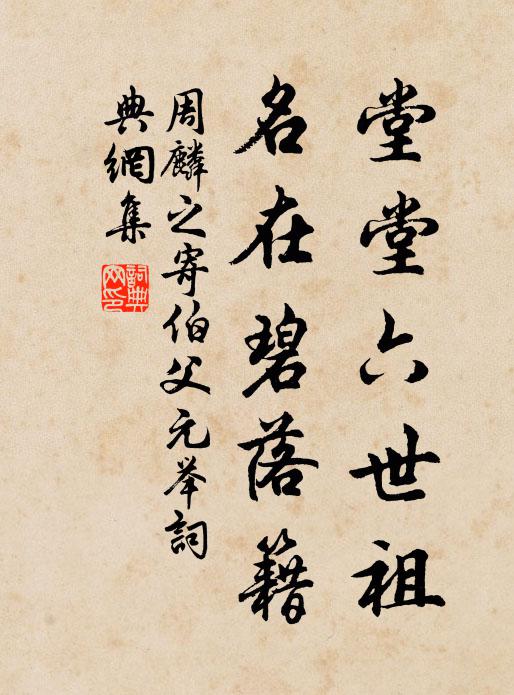 堂堂六世祖
名在碧落籍
周麟之寄伯父元举詞
典網集
詞典
网印